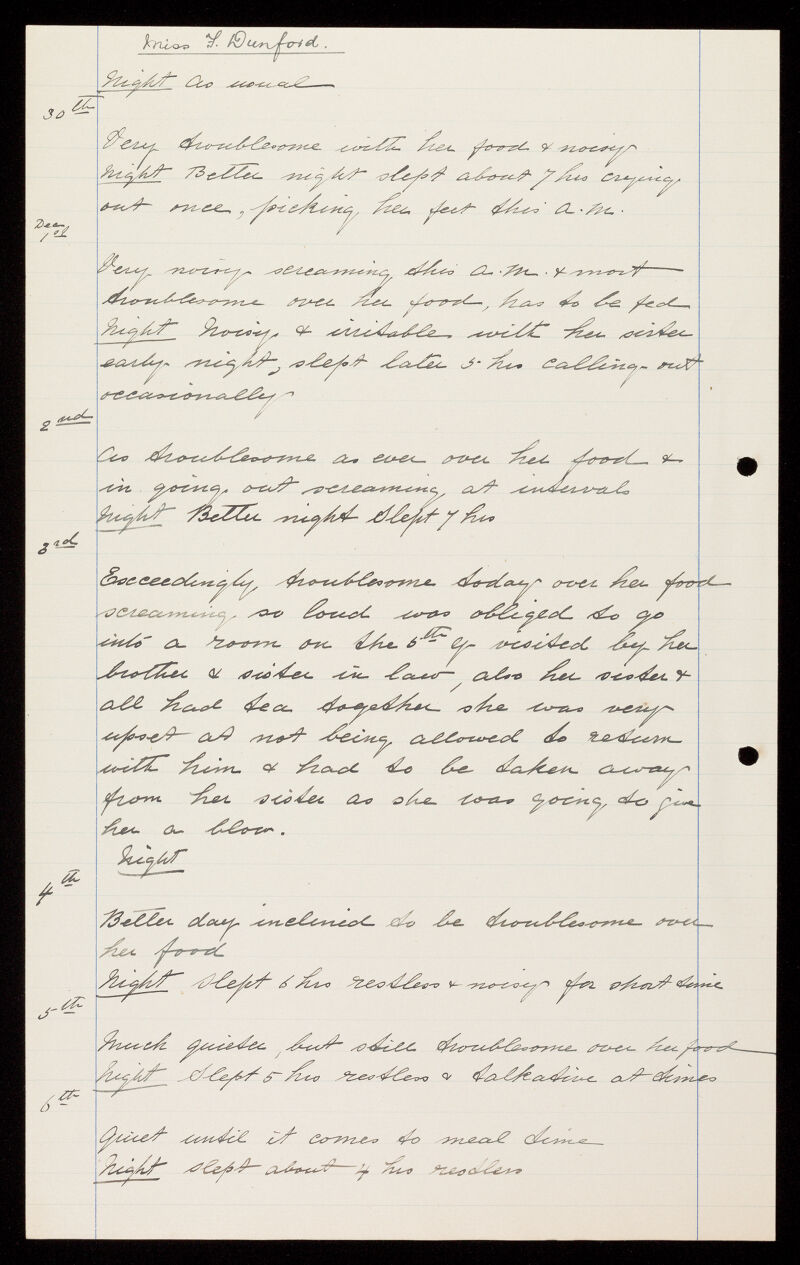 Miss F. Dunford.
Night As usual
30th
Very troublesome with her food & noisy
Night Better night slept about 7 hrs crying
out once, picking her feet this a.m.
Dec 1st
Very noisy screaming this a.m. & most
troublesome over her food, has to be fed
Night Noisy & irritable with her sister
early night, slept later 5 hrs calling out
occasionally
2nd
As troublesome as ever over her food &
in going out screaming at intervals
Night Better night Slept 7 hrs
3rd
Exceedingly troublesome today over her food
screaming so loud was obliged to go
into a room on the 5th G visited by her
brother & sister in law, also her sister &
all had tea together she was very
upset at not being allowed to return
with him & had to be taken away
from her sister as she was going to give
her a blow.
Night
4th
Better day inclined to be troublesome over
her food
Night Slept 6 hrs restless & noisy for short time
5th
Much quieter, but still troublesome over her food
Night Slept 5 hrs restless & talkative at times
6th
Quiet until it comes to meal time
Night Slept about 4 hrs restless